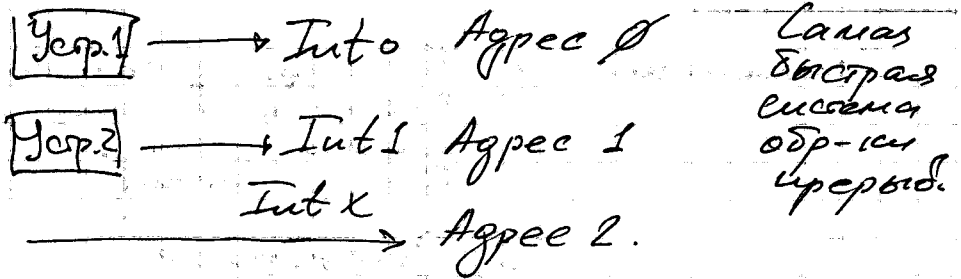 Устр.1 Int 0 Адрес 0
Устр.2 Int 1 Адрес 1
Int x
Адрес 2.
Самая
быстрая
система
обр-ки
прерыв.